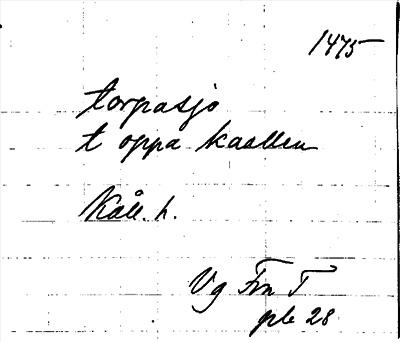 1475
torpasjo
t oppa kaallen
Kåll. h.
Vg Frn T
plc 28